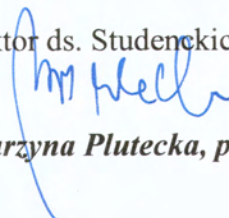 ktor ds. Studenckic
arzyna Plutecka, p